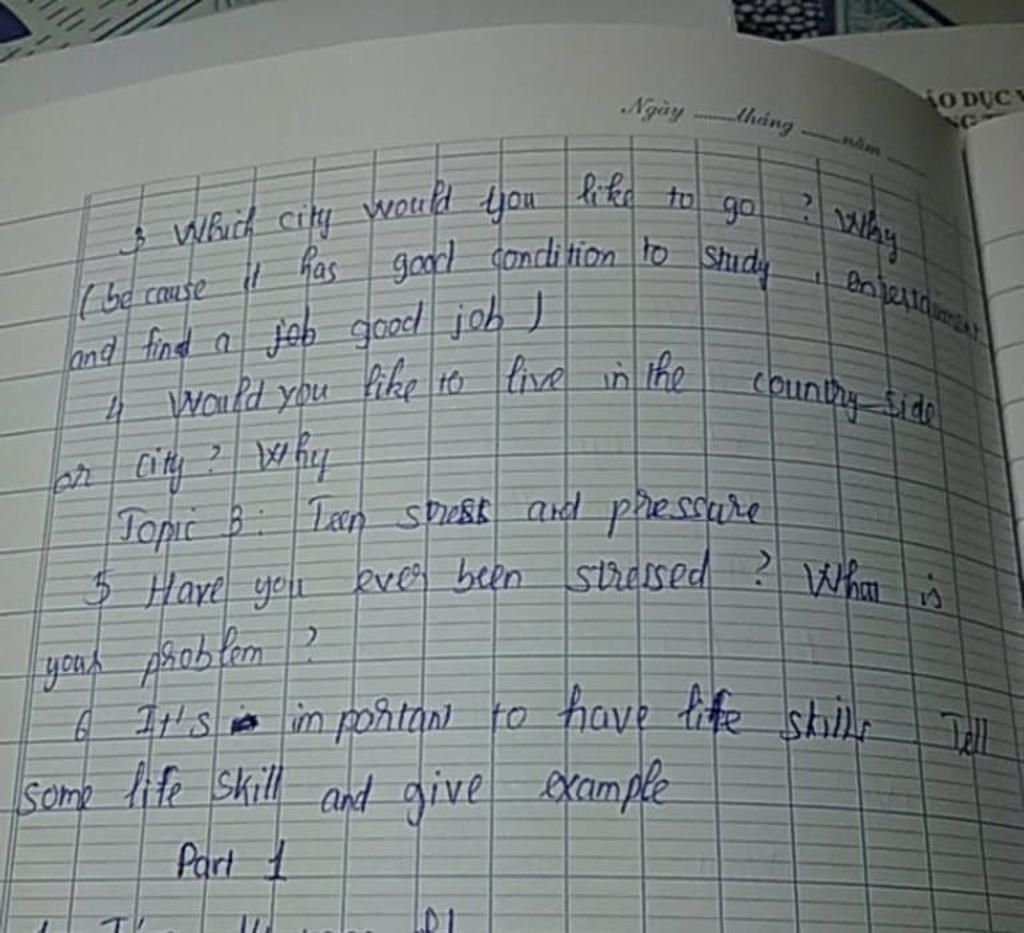 Ngày ........tháng ......năm ......
ÁO DỤC V
3 Which city would you like to go ? Why
( because it has good condition to study , entertainment
and find a job good job )
4 Would you like to live in the country side
or city ? Why
Topic 3 : Teen stress and pressure
5 Have you ever been stressed ? What is
your problem ?
6 It's important to have life skills Tell
some life skill and give example
Part 1